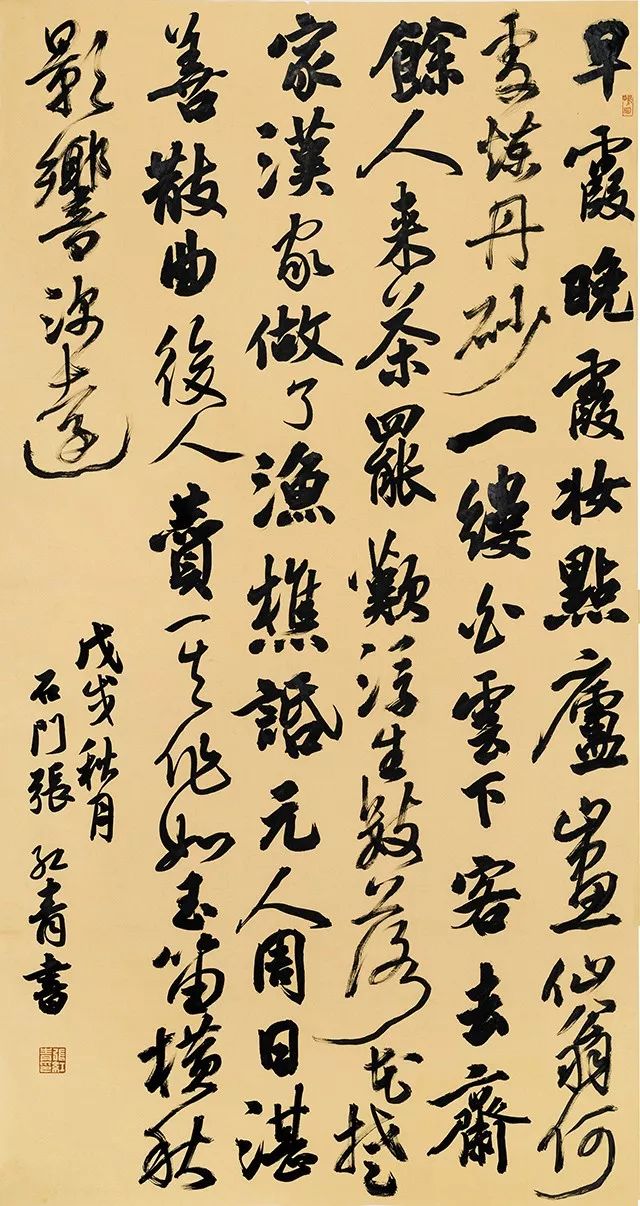 早霞晚霞妝點廬山畫仙翁何
處煉丹砂一縷白雲下客去齋
餘人來茶罷歎浮生數落花楚
家漢家做了漁樵話元人周日湛
善散曲後人贊其作如玉笛橫秋
影響深遠
戊戌秋月
石門張紅青書